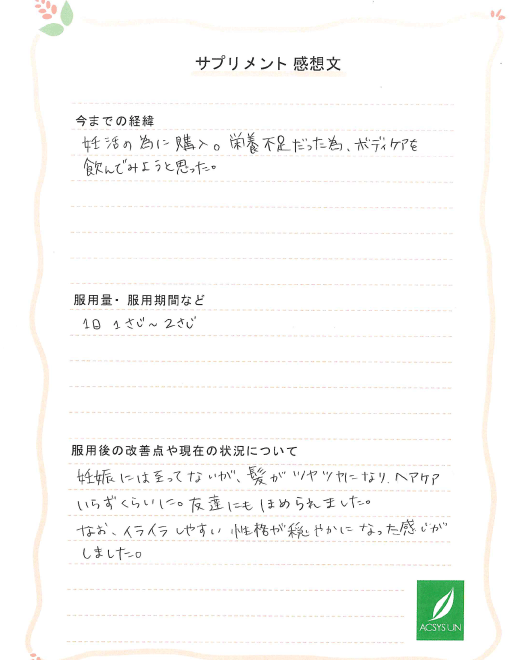 サプリメント 感想文
今までの経緯
妊活の為に購入。栄養不足だった為、ボディケアを
飲んでみようと思った。
服用量・服用期間など
1日 1さじ～2さじ
服用後の改善点や現在の状況について
妊娠には至ってないが、髪がツヤツヤになり、ヘアケア
いらずくらいに。友達にもほめられました。
なお、イライラしやすい性格が穏やかになった感じが
しました。
ACSYSUN